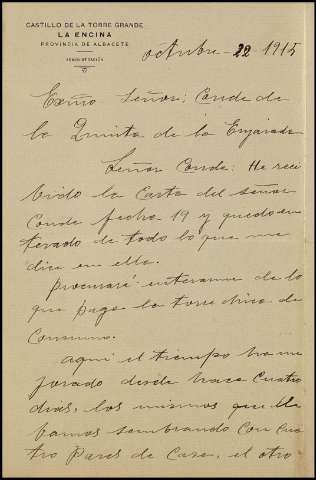 CASTILLO DE LA TORRE GRANDE
LA ENCINA
PROVINCIA DE ALBACETE
octubre - 22 - 1915
Exmo Señor: Conde de
la Quinta de la Enjarada
Señor Conde: He reci
bido la Carta del señor
Conde fecha 19 y quedo en
terado de todo lo que me
dice en ella.
procuraré enterarme de lo
que paga la torre chica de
Consumo.
aqui el tiempo ha me
jorado desde hace Cuatro
dias, los mismos que lle
bamos sembrando Con Cua
tro Pares de Casa, el otro